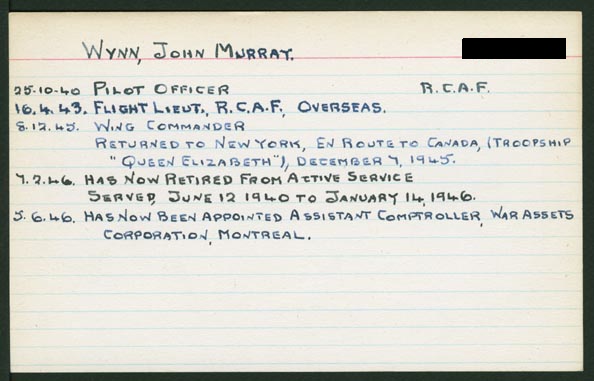 WYNN, JOHN MURRAY.
25.10.40 PILOT OFFICER R.C.A.F.
16.4.43. FLIGHT LIEUT., R.C.A.F., OVERSEAS.
8.12.45. WING COMMANDER
RETURNED TO NEW YORK, EN ROUTE TO CANADA, (TROOPSHIP
"QUEEN ELIZABETH"), DECEMBER 7, 1945.
7.2.46. HAS NOW RETIRED FROM ACTIVE SERVICE
SERVED, JUNE 12 1940 TO JANUARY 14, 1946.
5.6.46. HAS NOW BEEN APPOINTED ASSISTANT COMPTROLLER, WAR ASSETS
CORPORATION, MONTREAL.